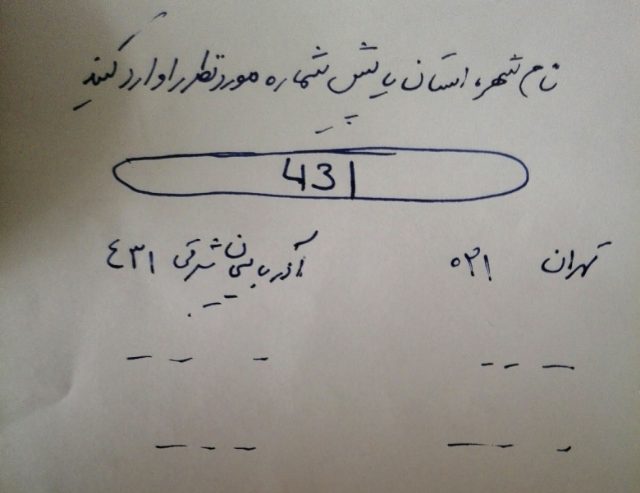 نام شهر، استان یا پیش شماره مورد نظر را وارد کنید
431
تهران ۰۲۱ آذربایجان شرقی ٤۳۱